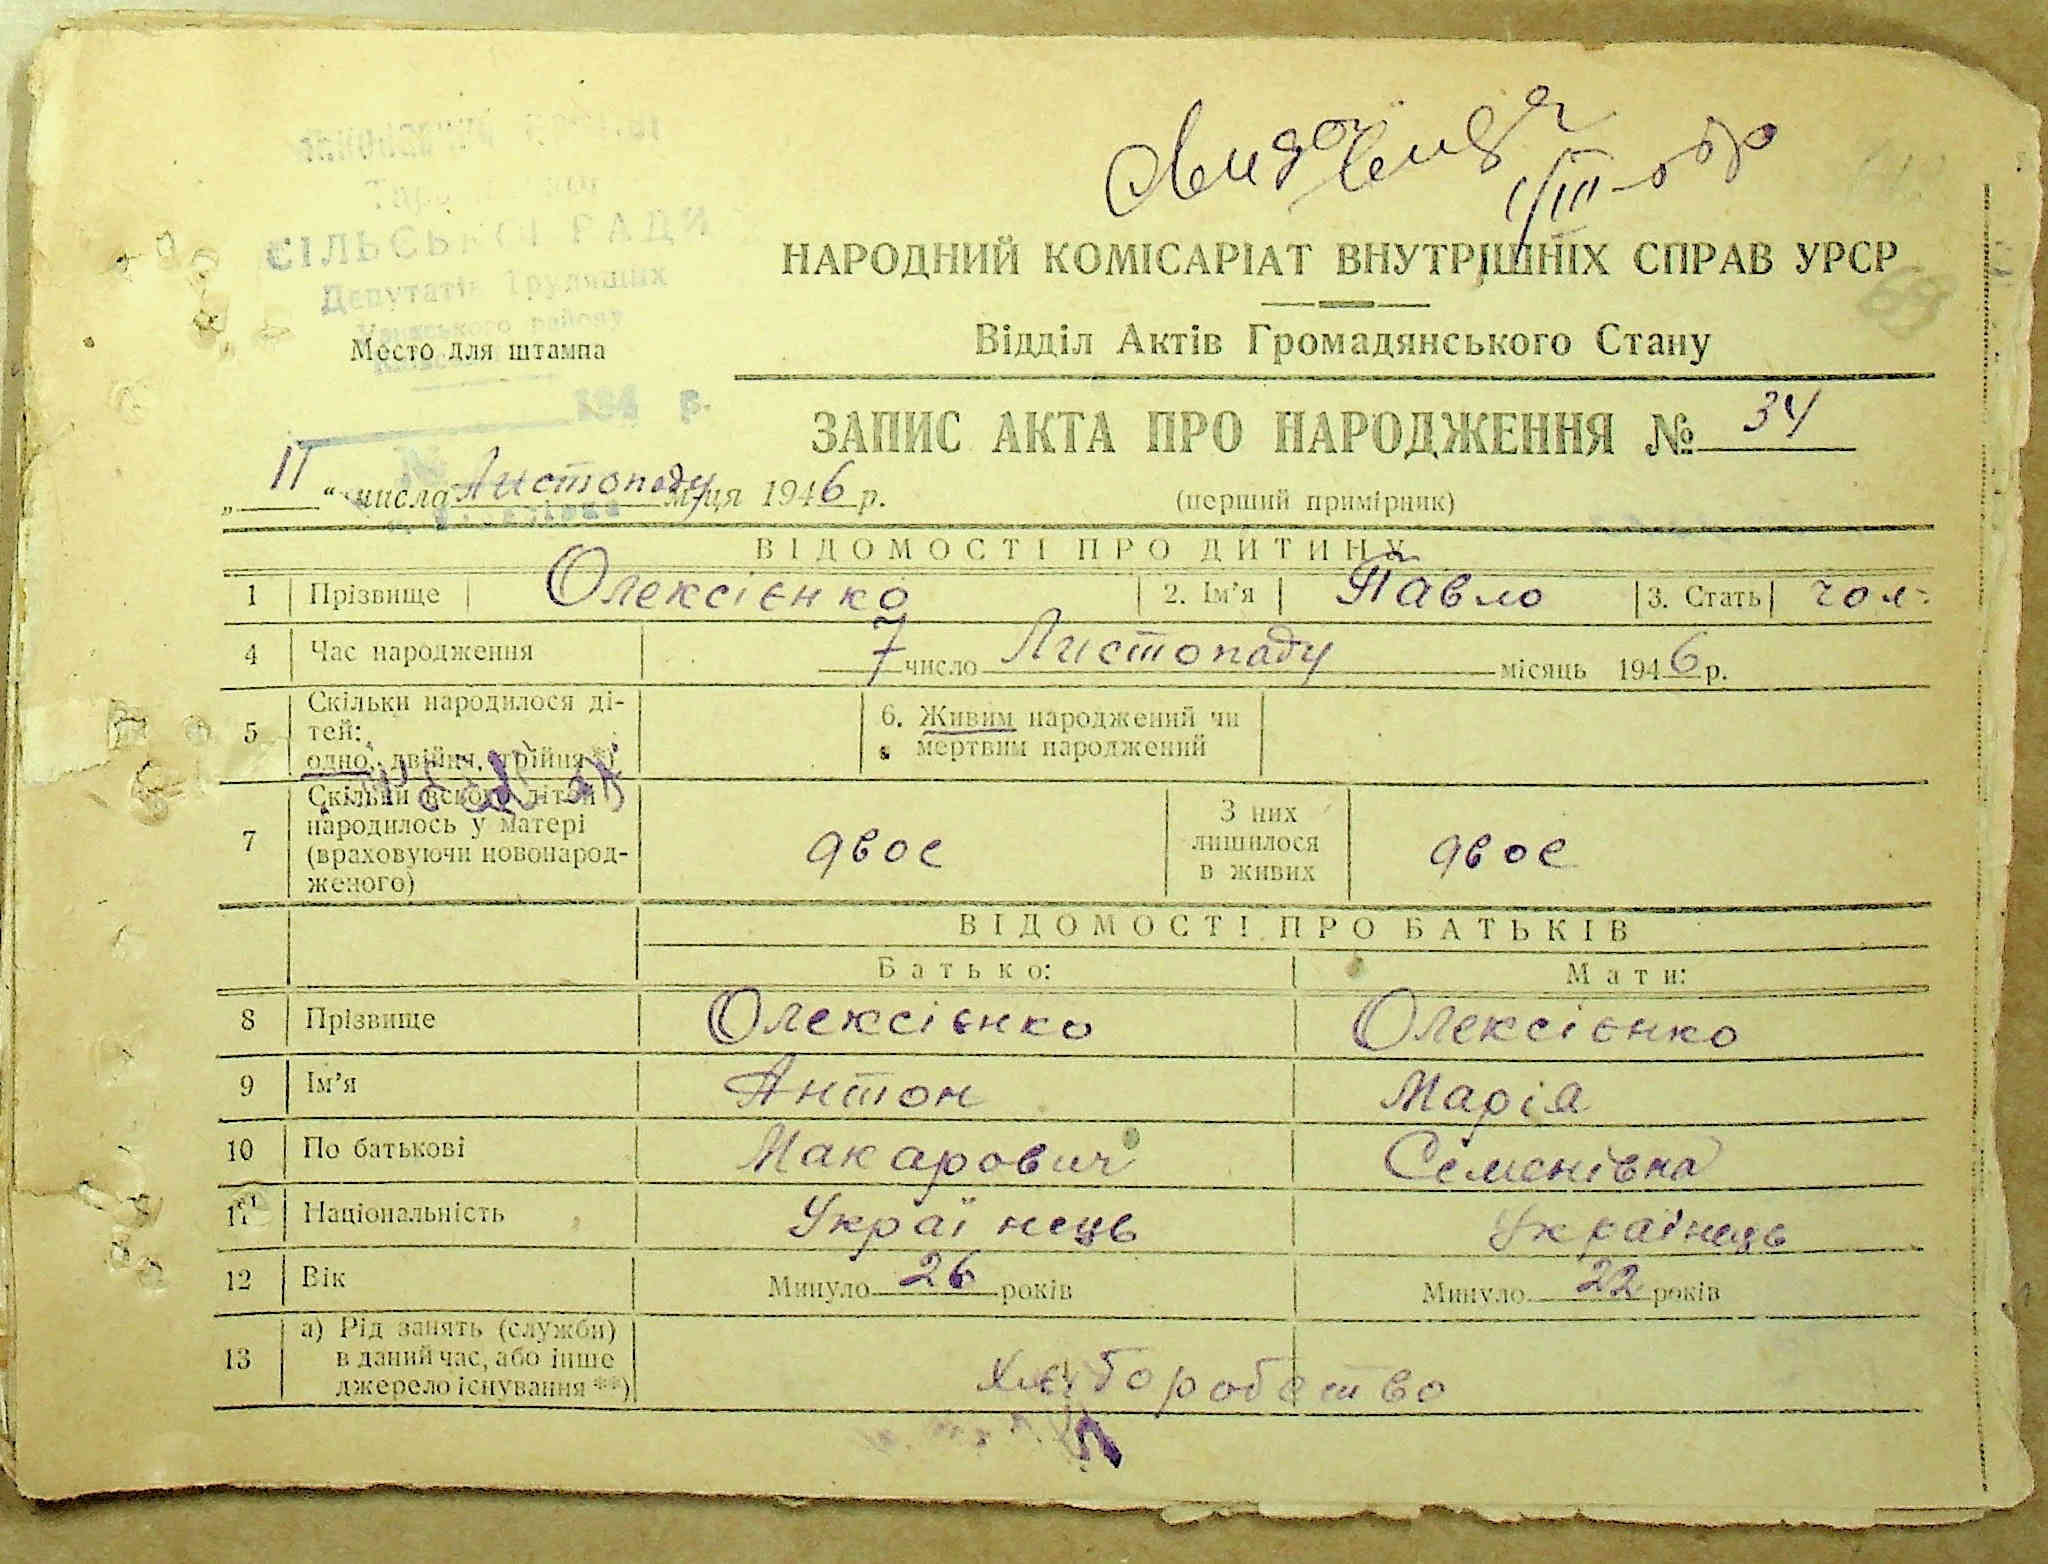 СІЛЬСЬКОЇ РАДИ
Депутатів Трудящих
району
Место для штампа
194 р.
НАРОДНИЙ КОМІСАРІАТ ВНУТРІШНІХ СПРАВ УРСР
69
Відділ Актів Громадянського Стану
ЗАПИС АКТА ПРО НАРОДЖЕННЯ № 34
„ 11 “ числа Листопаду м-ця 1946 р.
(перший примірник)
ВІДОМОСТІ ПРО ДИТИНУ
1 Прізвище Олексієнко 2. Ім’я Павло 3. Стать чол.
4 Час народження 7 число Листопаду місяць 1946 р.
5 Скільки народилося ді-
тей:
одно, двійня, трійня *)
6. Живим народжений чи
мертвим народжений
7 Скільки всього дітей
народилось у матері
(враховуючи новонарод-
женого)
двоє
З них
лишилося
в живих
двоє
ВІДОМОСТІ ПРО БАТЬКІВ
Батько: Мати:
8 Прізвище Олексієнко Олексієнко
9 Ім’я Антон Марія
10 По батькові Макарович Семенівна
11 Національність Українець Українець
12 Вік Минуло 26 років Минуло 22 років
13 а) Рід занять (служби)
в даний час, або інше
джерело існування **)
Хліборобство